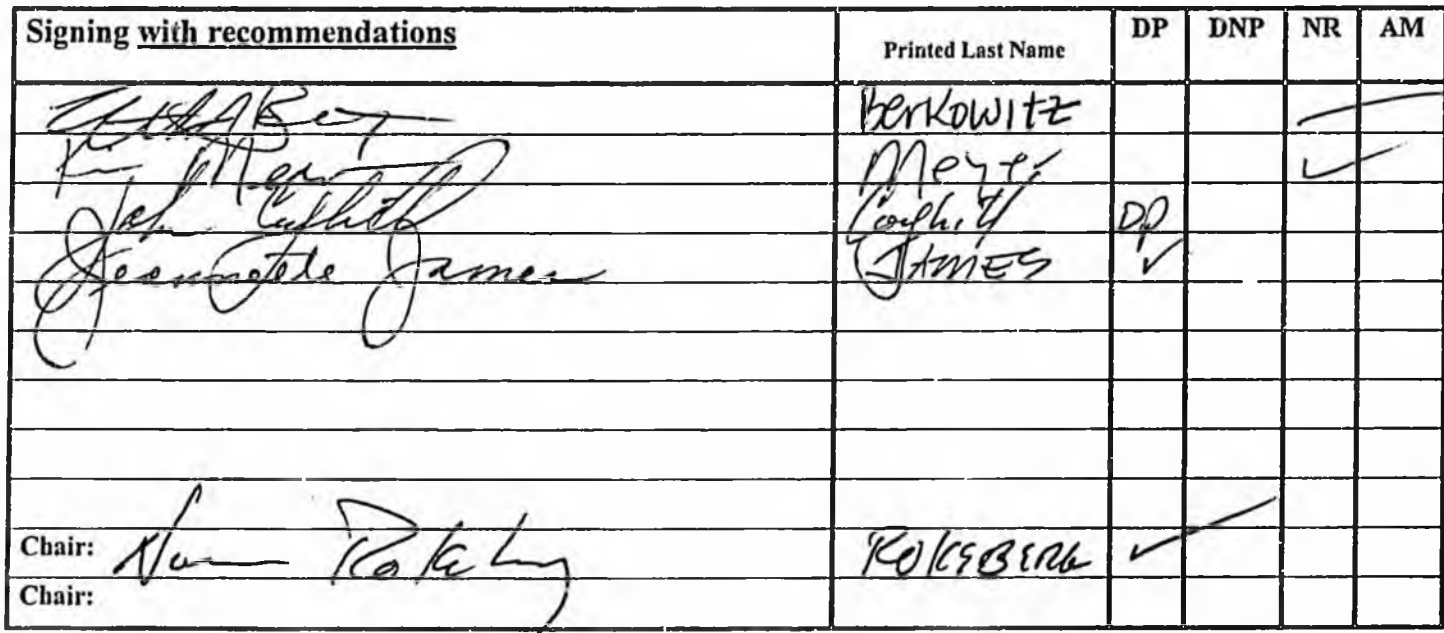 Signing with recommendations Printed Last Name DP DNP NR AM
Berkowitz ✓
Meyer ✓
John Coghill Coghill DP
Jeannette James JAMES ✓
Chair: Norm Rokeberg ROKEBERG ✓
Chair: